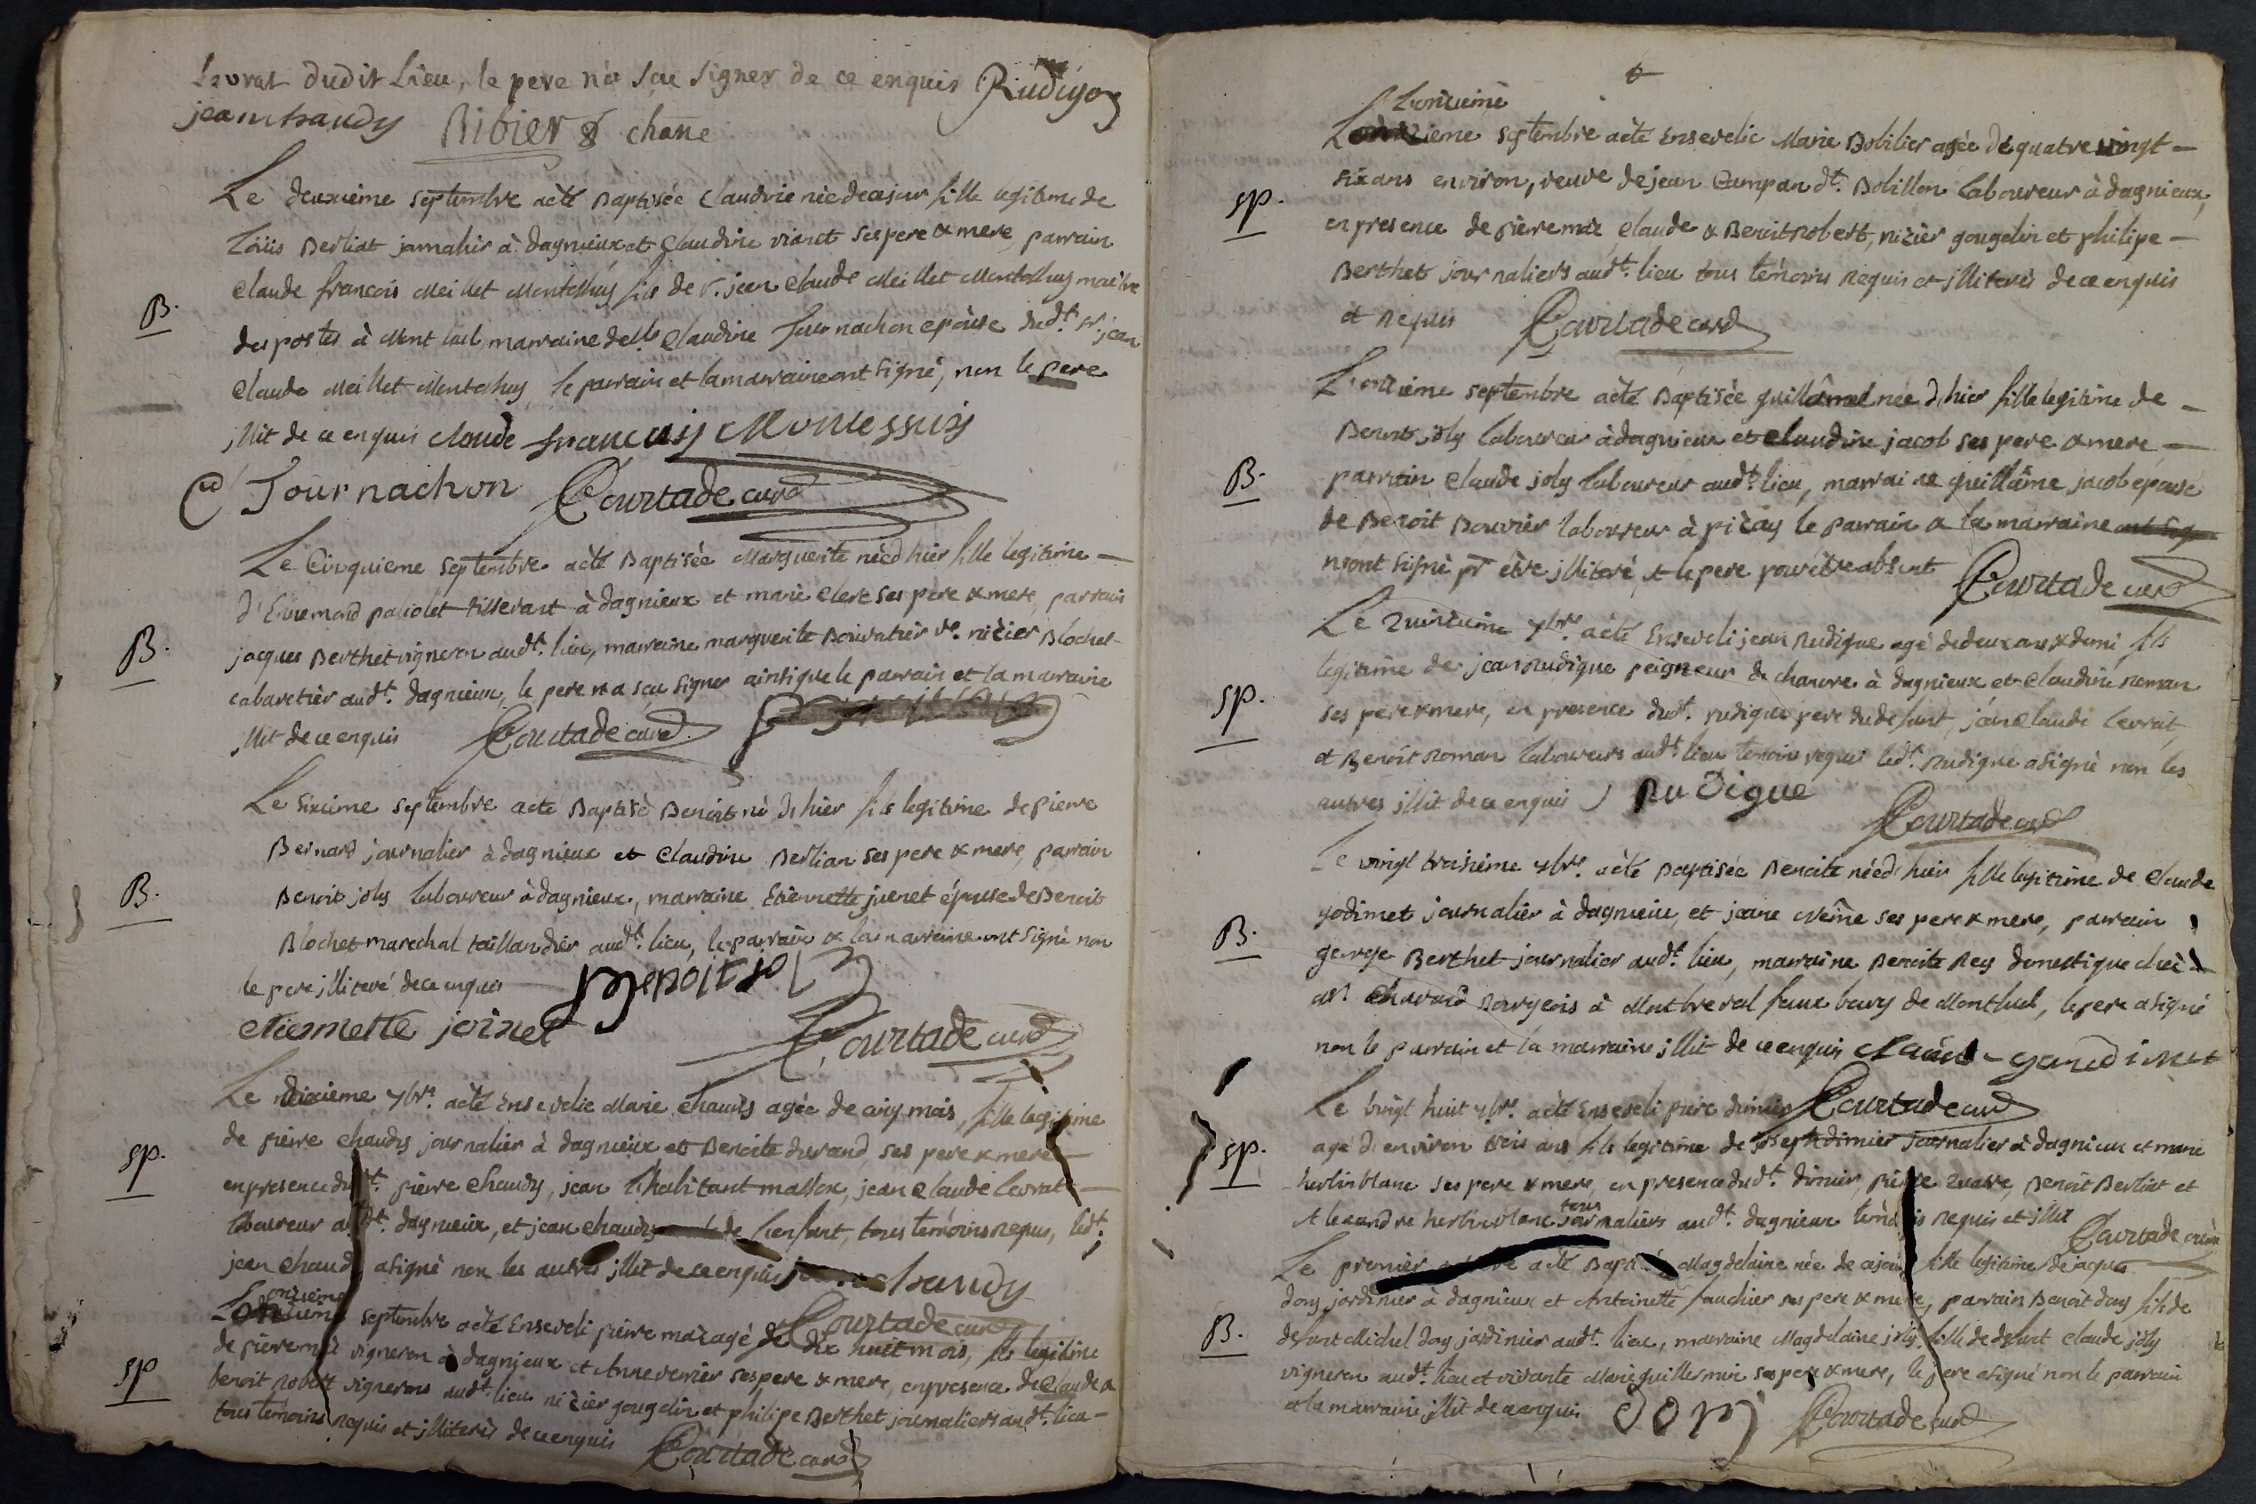 Levrat dudit lieu, le pere n'a sçu signer de ce enquis Rudigoz
jean chaudy Ribier & chane
Le deuxieme septembre a été Baptisée Claudine née de ce jour fille legitime de
Loüis Berliat journalier à dagnieux et Claudine vianet ses pere & mere, parrain
Claude françois Meillet Montessuy fils de sr. jean Claude Meillet Montessuy maitre
B.
des postes à Montluel, marraine delle Claudine Tournachon epouse dudt. sr. jean
Claude Meillet Montessuy le parrain et la marraine ont signé, non le pere
illit de ce enquis claude françois Montessuy
Tournachon Courtade curé
Le Cinquieme septembre a été Baptisée Marguerite née d'hier fille legitime
d'Ennemond paviolet tisserant à dagnieux et marie Clerc ses pere & mere, parrain
B.
jacques Berthet vigneron audt. lieu, marraine marguerite ve. nizier Blochet
cabaretier audt. dagnieux, le pere n'a sçu signer ainsi que le parrain et la marraine
illit de ce enquis Courtade curé
Le sixieme septembre a été Baptisé Benoit né d'hier fils legitime de pierre
Bernard journalier à dagnieux et Claudine Berlian ses pere & mere, parrain
B.
Benoit joly laboureur à dagnieux, marraine Etiennette juenet épouse de Benoit
Blochet marechal taillandier audt. lieu, le parrain & la marraine ont signé non
le pere illiteré de ce enquis Benoit jolÿ
etiennette joinet Courtade curé
Le dixieme 7bre. a été Ensevelie Marie Chaudy agée de cinq mois, fille legitime
de pierre chaudy journalier à dagnieux et Benoite durand, ses pere & mere
sp.
en presence dudt. pierre Chaudy, jean jean Claude Levrat
laboureur audt. dagnieux, et jean chaudy de l'enfant, tous temoins requis, ledt.
jean Chaudy a signé non les autres illit de ce enquis chaudy
Courtade curé
L'onzieme septembre a été Enseveli pierre maz agé de dix huit mois, fils legitime
de pierre maz vigneron à dagnieux et Anne verrier ses pere & mere, en presence de Claude &
sp
benoit Robert vignerons audt. lieu nizier gougelin et philipe Berthet journaliers audt. lieu
tous temoins requis et illiterés de ce enquis Courtade curé
L'onzieme
septembre a été Ensevelie Marie Bobilier agée de quatre vingt
six ans environ, veuve de jean Campan dt. Bobillon laboureur à dagnieux,
sp.
en presence de pierre maz, Claude & Benoit Robert, nizier gougelin et philipe
Berthet journaliers audt. lieu tous temoins requis et illiterés de ce enquis
et requis Courtade curé
L'onzieme septembre a été Baptisée guillâme née d'hier fille legitime de
Benoit joly laboureur à dagnieux et Claudine jacob ses pere & mere
B.
parrain Claude joly laboureur audt. lieu, marraine guillâme jacob epouse
de Benoit Bouvier laboureur à pizay le parrain & la marraine ont sig
n'ont signé pr. être illiteré, et le pere pour être absent Courtade curé
Le quinzieme 7bre. a été Enseveli jean Rudigue agé de deux ans & demi, fils
legitime de jean Rudigue peigneur de chanvre à dagnieux et Claudine Roman
sp.
ses pere & mere, en presence dudt. rudigue pere du defunt, jean Claude Levrat
et Benoit Roman laboureurs audt. lieu temoins requis ledt. Rudigue a signé non les
autres illit de ce enquis Rudigue
Courtade curé
Le vingt troisieme 7bre. a été Baptisée Benoite née d'hier fille legitime de Claude
godimet journalier à dagnieux, et jeane ses pere & mere, parrain
B.
george Berthet journalier audt. lieu, marraine Benoite Rey domestique chez
mr. Chavard Bourgeois à Montbreval faux bourg de Montluel, le pere a signé
non le parrain et la marraine illit de ce enquis claude
Courtade curé
Le vingt huit 7bre. a été Enseveli pierre dimier
agé d'environ trois ans fils legitime de joseph dimier journalier à dagnieux et marie
sp.
herlinblanc ses pere & mere, en presence dudt. dimier, pierre Benoit Berliat et
Alexandre herlinblanc tous journaliers audt. dagnieux temoins requis et illit
Courtade curé
Le premier octobre a été Baptisée Magdelaine née de ce jour fille legitime de jaques
dony jardinier à dagnieux et Antoinette fauchier ses pere & mere, parrain Benoit dony fils de
B.
defunt Michel dony jardinier audt. lieu, marraine Magdelaine joly fille de defunt Claude joly
vigneron audt. lieu et vivante Marie guillermin ses pere & mere, le pere a signé non le parrain
et la marraine illit de ce enquis dony Courtade curé